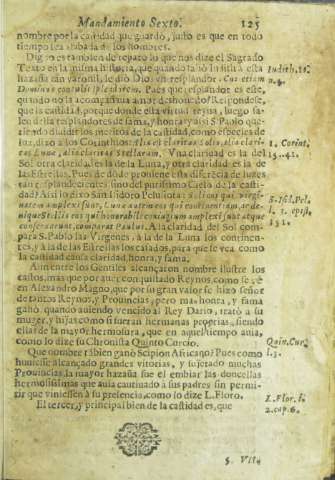 Mandamiento Sexto. 125
nombre por la castidad que guardò, justo es que en todo
tiempo sea alabada de los hombres.
Digno es tambien de reparo lo que nos dize el Sagrado
Texto en la misma historia, que quando hizo Iudith esta
hazaña tan varonil, le dio Dios vn resplandor: Cui etiam
Dominus contulit splendorem. Pues que resplandor es este,
quando no la acompañaua amor deshonesto? Respondese,
que la castidad, porque donde esta virtud reyna, luego sa-
len della resplandores de fama, y honra: y assi S. Pablo que-
riendo diuidir los meritos de la castidad, como especies de
luz, dixo a los Corinthios: Alia est claritas Solis, alia clari-
tas Lunæ, alia claritas Stellarum. Vna claridad es la del
Sol, otra claridad es la de la Luna, y otra claridad es la de
las Estrellas. Pues de dòde prouiene esta diferēcia de luzes
tan resplandecientes sino del purissimo Cielo de la casti-
dad? Assi lo dixo San Isidoro Pelusiota: Soli eos qui virgi-
nitatem amplexi sunt, Lunæ autem eos qui continentiam, ac de-
nique Stellis eos qui honorabile coniugium amplexi sunt atque
conseruarunt, comparat Paulus. A la claridad del Sol com-
para S. Pablo las Virgenes, à la de la Luna los continen-
tes, y à la de las Estrellas los casados, para que se vea como
la castidad causa claridad, honra, y fama.
Aun entre los Gentiles alcançaron nombre ilustre los
castos, mas que por auer conquistado Reynos, como se vè
en Alexandro Magno, que por su gran valor se hizo señor
de tantos Reynos, y Prouincias, pero mas honra, y fama
ganò, quando auiendo vencido al Rey Dario, tratò a su
muger, y hijas como si fueran hermanas proprias, siendo
ellas de la mayor hermosura, que en aquel tiempo auia,
como lo dize su Chronista Quinto Curcio.
Que nombre tābien ganò Scipion Africano? Pues como
huuiesse alcançado grandes vitorias, y sujetado muchas
Prouincias, la mayor hazaña fue el embiar las doncellas
hermosissimas que auia cautiuado à sus padres sin permi-
tir que viniessen à su presencia, como lo dize L. Floro.
El tercero, y principal bien de la castidad es, que
Iudith. 10.
n. 4.
1. Corint.
15. 41.
S. Isid. Pel.
l. 3. epist.
351.
Quin. Cur.
l. 3.
L. Flor. l.
2. cap. 6.